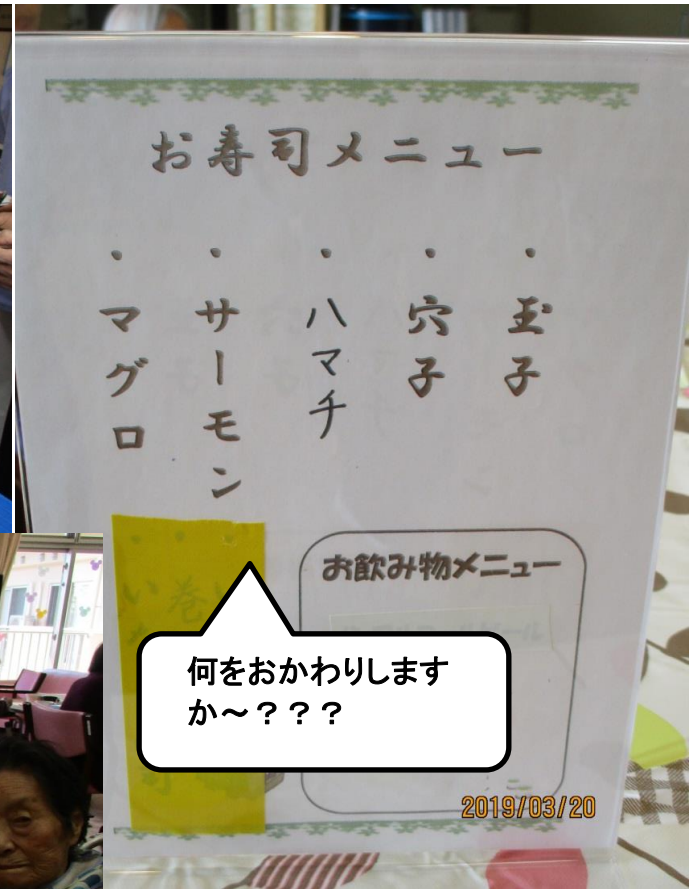 お寿司メニュー
・玉子
・穴子
・ハマチ
・サーモン
・マグロ
お飲み物メニュー
何をおかわりします
か～？？？
2019/03/20